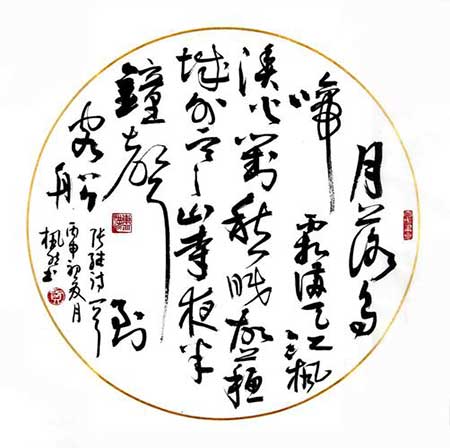 月落乌
啼霜满天江枫
渔火對愁眠姑蘇
城外寒山寺夜半
鐘聲到
客船
张继诗一首
丙申初夏月
枫书